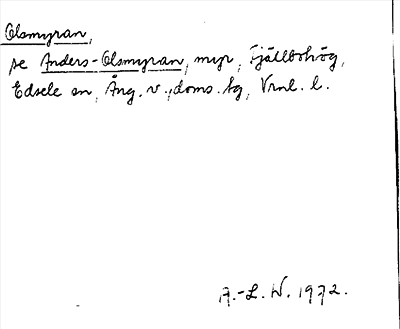 Olsmyran,
se Anders-Olsmyran, myr, Fjällbohög,
Edsele sn, Ång. v., doms. tg, Vrnl. l.
A.-L. W. 1972.